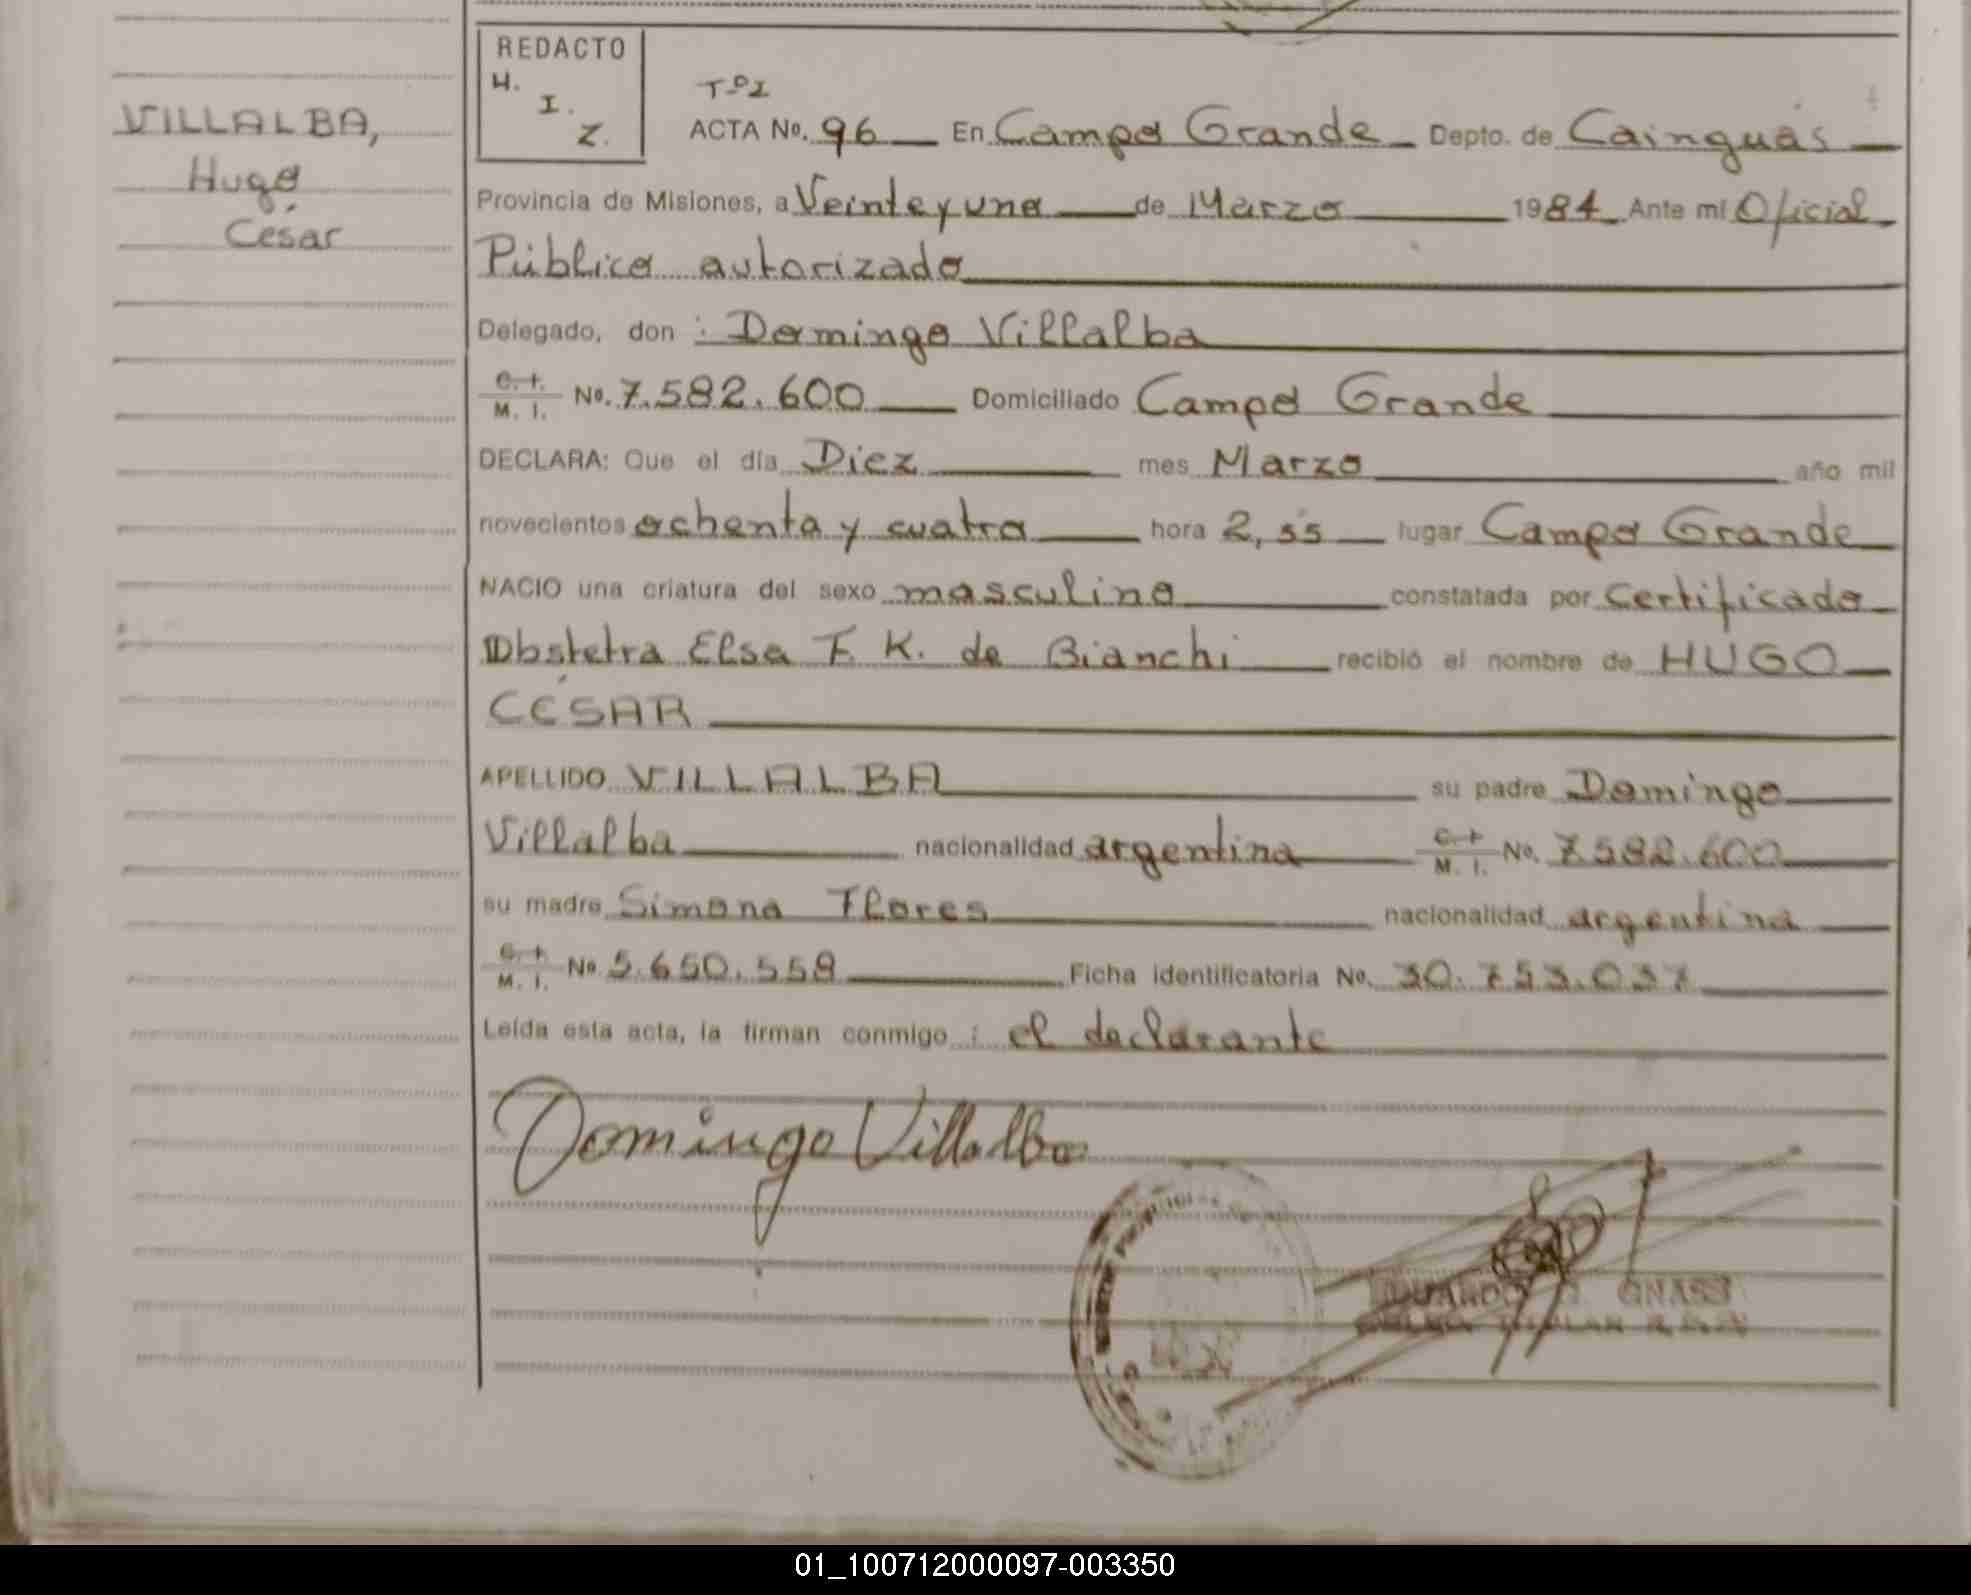 VILLALBA,
Hugo
César
REDACTO
H.
I.
Z.
Tº I
ACTA No. 96 En Campo Grande Depto. de Cainguás
Provincia de Misiones, a Veinte y uno de Marzo 1984 Ante mí Oficial
Público autorizado
Delegado, don : Domingo Villalba
C. I. M. I. No. 7.582.600 Domiciliado Campo Grande
DECLARA: Que el día Diez mes Marzo año mil
novecientos ochenta y cuatro hora 2,55 lugar Campo Grande
NACIO una criatura del sexo masculino constatada por Certificado
Obstetra Elsa F. K. de Bianchi recibió el nombre de HUGO
CÉSAR
APELLIDO VILLALBA su padre Domingo
Villalba nacionalidad argentina C. I. M. I. No. 7.582.600
su madre Simona Flores nacionalidad argentina
C. I. M. I. No 5.650.558 Ficha identificatoria No. 30.753.037
Leída esta acta, la firman conmigo : el declarante
Domingo Villalba
GNASS
01_100712000097-003350